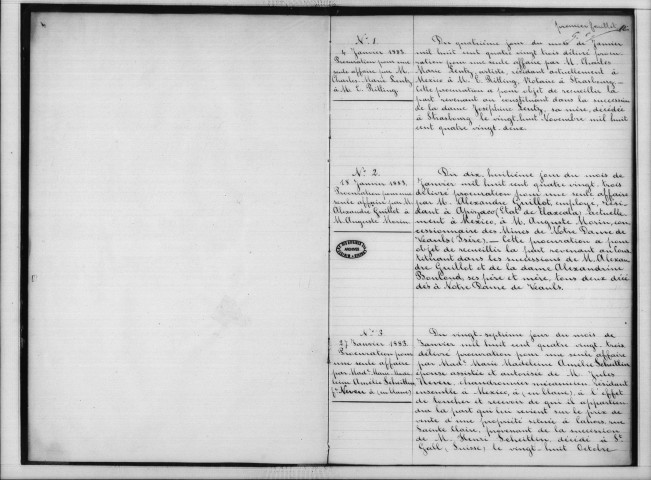 premier feuillet
N° 1
4 Janvier 1883.
Procuration pour une
seule affaire par M.
Charles Marie Lentz
à M. L. Ritling
Du quatrième jour du mois de Janvier
mil huit cent quatre vingt trois délivré procu-
ration pour une seule affaire par M. Charles
Marie Lentz, artiste, résidant actuellement à
Mexico à M. L. Ritling, Notaire à Strasbourg.
Cette procuration a pour objet de recueillir la
part revenant au constituant dans la succession
de la dame Joséphine Lentz, sa mère, décédée
à Strasbourg le vingt huit Novembre mil huit
cent quatre vingt deux.
N° 2.
18 Janvier 1883.
Procuration pour une
seule affaire par M.
Alexandre Guillot à
M. Auguste Morin
Du dix huitième jour du mois de
Janvier mil huit cent quatre vingt trois
délivré procuration pour une seule affaire
par M. Alexandre Guillot, employé, rési-
dant à Apizaco (État de Tlaxcala) actuelle-
ment à Mexico, à M. Auguste Morin, con-
cessionnaire des Mines de Notre Dame de
Vaulx (Isère). — Cette procuration a pour
objet de recueillir la part revenant au cons-
tituant dans les successions de M. Alexan-
dre Guillot et de la dame Alexandrine
ses père et mère, tous deux décé-
dés à Notre Dame de Vaulx.
N° 3
27 Janvier 1883.
Procuration pour
une seule affaire
par Made Marie Made-
leine Amélie Scheitlin
fe Never à (en blanc)
Du vingt-septième jour du mois de
Janvier mil huit cent quatre vingt trois
délivré procuration pour une seule affaire
par Made Marie Madeleine Amélie Scheitlin
épouse assistée et autorisée de M. Jules
Never, chaudronnier mécanicien, résidant
ensemble à Mexico, à (en blanc), à l'effet
de toucher et recevoir de qui il appartien-
dra la part qui lui revient sur le prix de
vente d'une propriété située à Cahors, rue
Sainte Claire, provenant de la succession
de M. Henri Scheitlin décédé à St
Gall, (Suisse) le vingt-huit Octobre